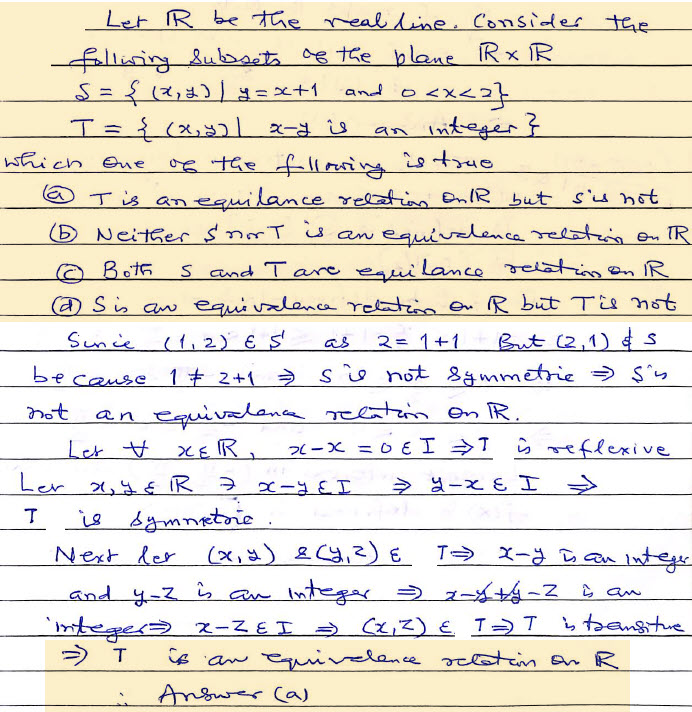 Let ℝ be the real line. Consider the
following Subsets of the plane ℝ×ℝ
S = { (x,y) | y = x+1 and 0 <x<2}
T = { (x,y) | x-y is an integer }
which one of the following is true
(a) T is an equilance relation on ℝ but S is not
(b) Neither S nor T is an equivalence relation on ℝ
(c) Both S and T are equilance relation on ℝ
(d) S is an equivalence relation on ℝ but T is not
Since (1,2) ∈ S as 2 = 1+1 But (2,1) ∉ S
because 1 ≠ 2+1 ⇒ S is not Symmetric ⇒ S is
not an equivalence relation on ℝ.
Let ∀ x∈ℝ, x-x = 0 ∈ I ⇒ T is reflexive
Let x,y ∈ ℝ ∋ x-y ∈ I ⇒ y-x ∈ I ⇒
T is Symmetric.
Next let (x,y) & (y,z) ∈ T ⇒ x-y is an integer
and y-z is an integer ⇒ x-y+y-z is an
integer ⇒ x-z ∈ I ⇒ (x,z) ∈ T ⇒ T is transitive
⇒ T is an equivalence relation on ℝ
∴ Answer (a)